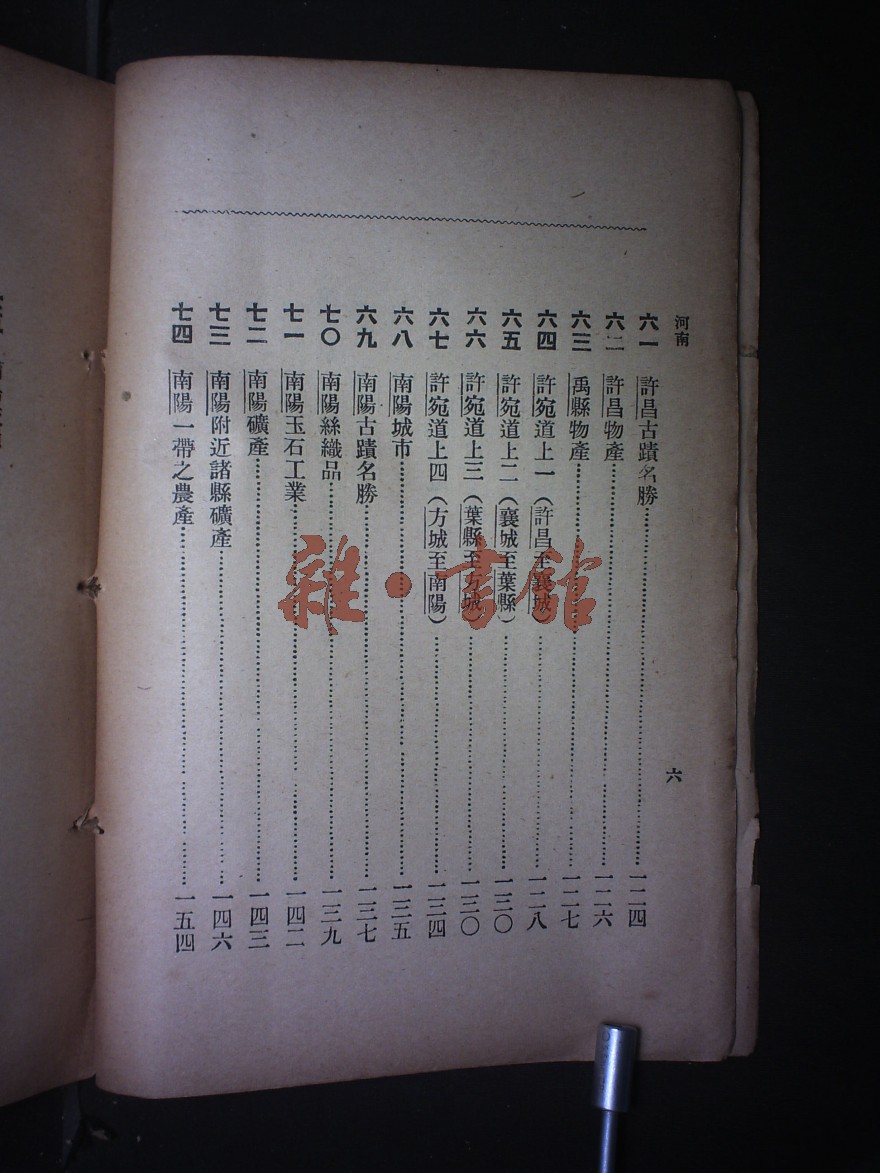 河南
六一 許昌古蹟名勝……一二四
六二 許昌物產……一二六
六三 禹縣物產……一二七
六四 許宛道上一（許昌至襄城）……一二八
六五 許宛道上二（襄城至葉縣）……一三〇
六六 許宛道上三（葉縣至方城）……一三〇
六七 許宛道上四（方城至南陽）……一三四
六八 南陽城市……一三五
六九 南陽古蹟名勝……一三七
七〇 南陽絲織品……一三九
七一 南陽玉石工業……一四二
七二 南陽礦產……一四三
七三 南陽附近諸縣礦產……一四六
七四 南陽一帶之農產……一五四
六
雜·書館